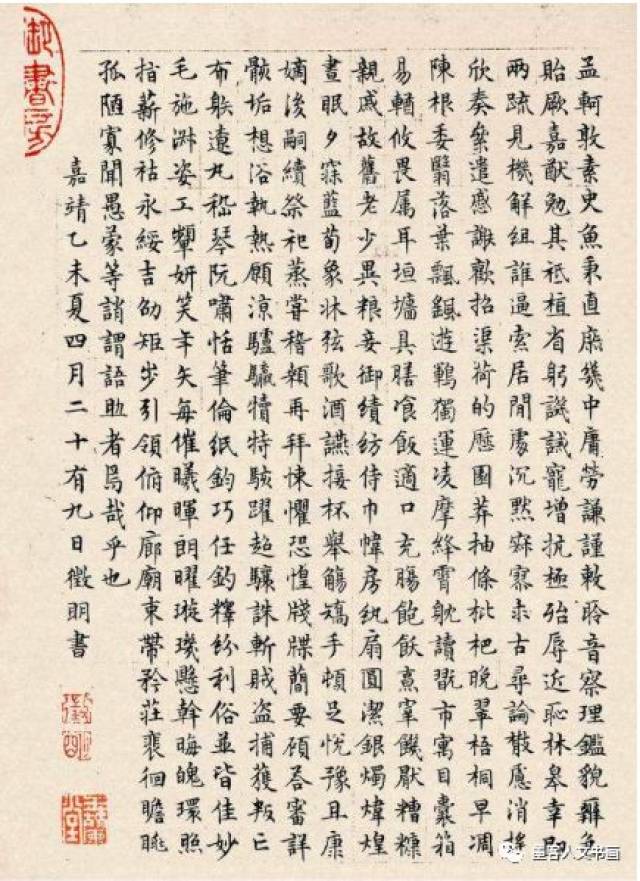 孟軻敦素史魚秉直庶幾中庸勞謙謹敕聆音察理鑑貌辨色
貽厥嘉猷勉其祗植省躬譏誡寵增抗極殆辱近恥林皋幸即
兩疏見機解組誰逼索居閒處沉默寂寥求古尋論散慮逍遙
欣奏累遣慼謝歡招渠荷的歷園莽抽條枇杷晚翠梧桐早凋
陳根委翳落葉飄颻遊鵾獨運凌摩絳霄耽讀翫市寓目囊箱
易輶攸畏属耳垣墻具膳飡飯適口充腸飽飫烹宰饑厭糟糠
親戚故舊老少異粮妾御績紡侍巾帷房紈扇圓潔銀燭煒煌
晝眠夕寐藍荀象牀弦歌酒讌接杯舉觴矯手頓足悅豫且康
嫡後嗣續祭祀蒸嘗稽顙再拜悚懼恐惶牋牒簡要顧答審詳
骸垢想浴執熱願涼驢騾犢特駭躍超驤誅斬賊盜捕獲叛亡
布射遼丸嵇琴阮嘯恬筆倫紙鈞巧任釣釋紛利俗並皆佳妙
毛施淑姿工顰妍笑年矢每催曦暉朗曜璇璣懸斡晦魄環照
指薪修祜永綏吉劭矩步引領俯仰廊廟束帶矜莊裴徊瞻眺
孤陋寡聞愚蒙等誚謂語助者焉哉乎也
嘉靖乙未夏四月二十有九日徵明書
御書房
徵明
玉蘭堂
墨客人文书画